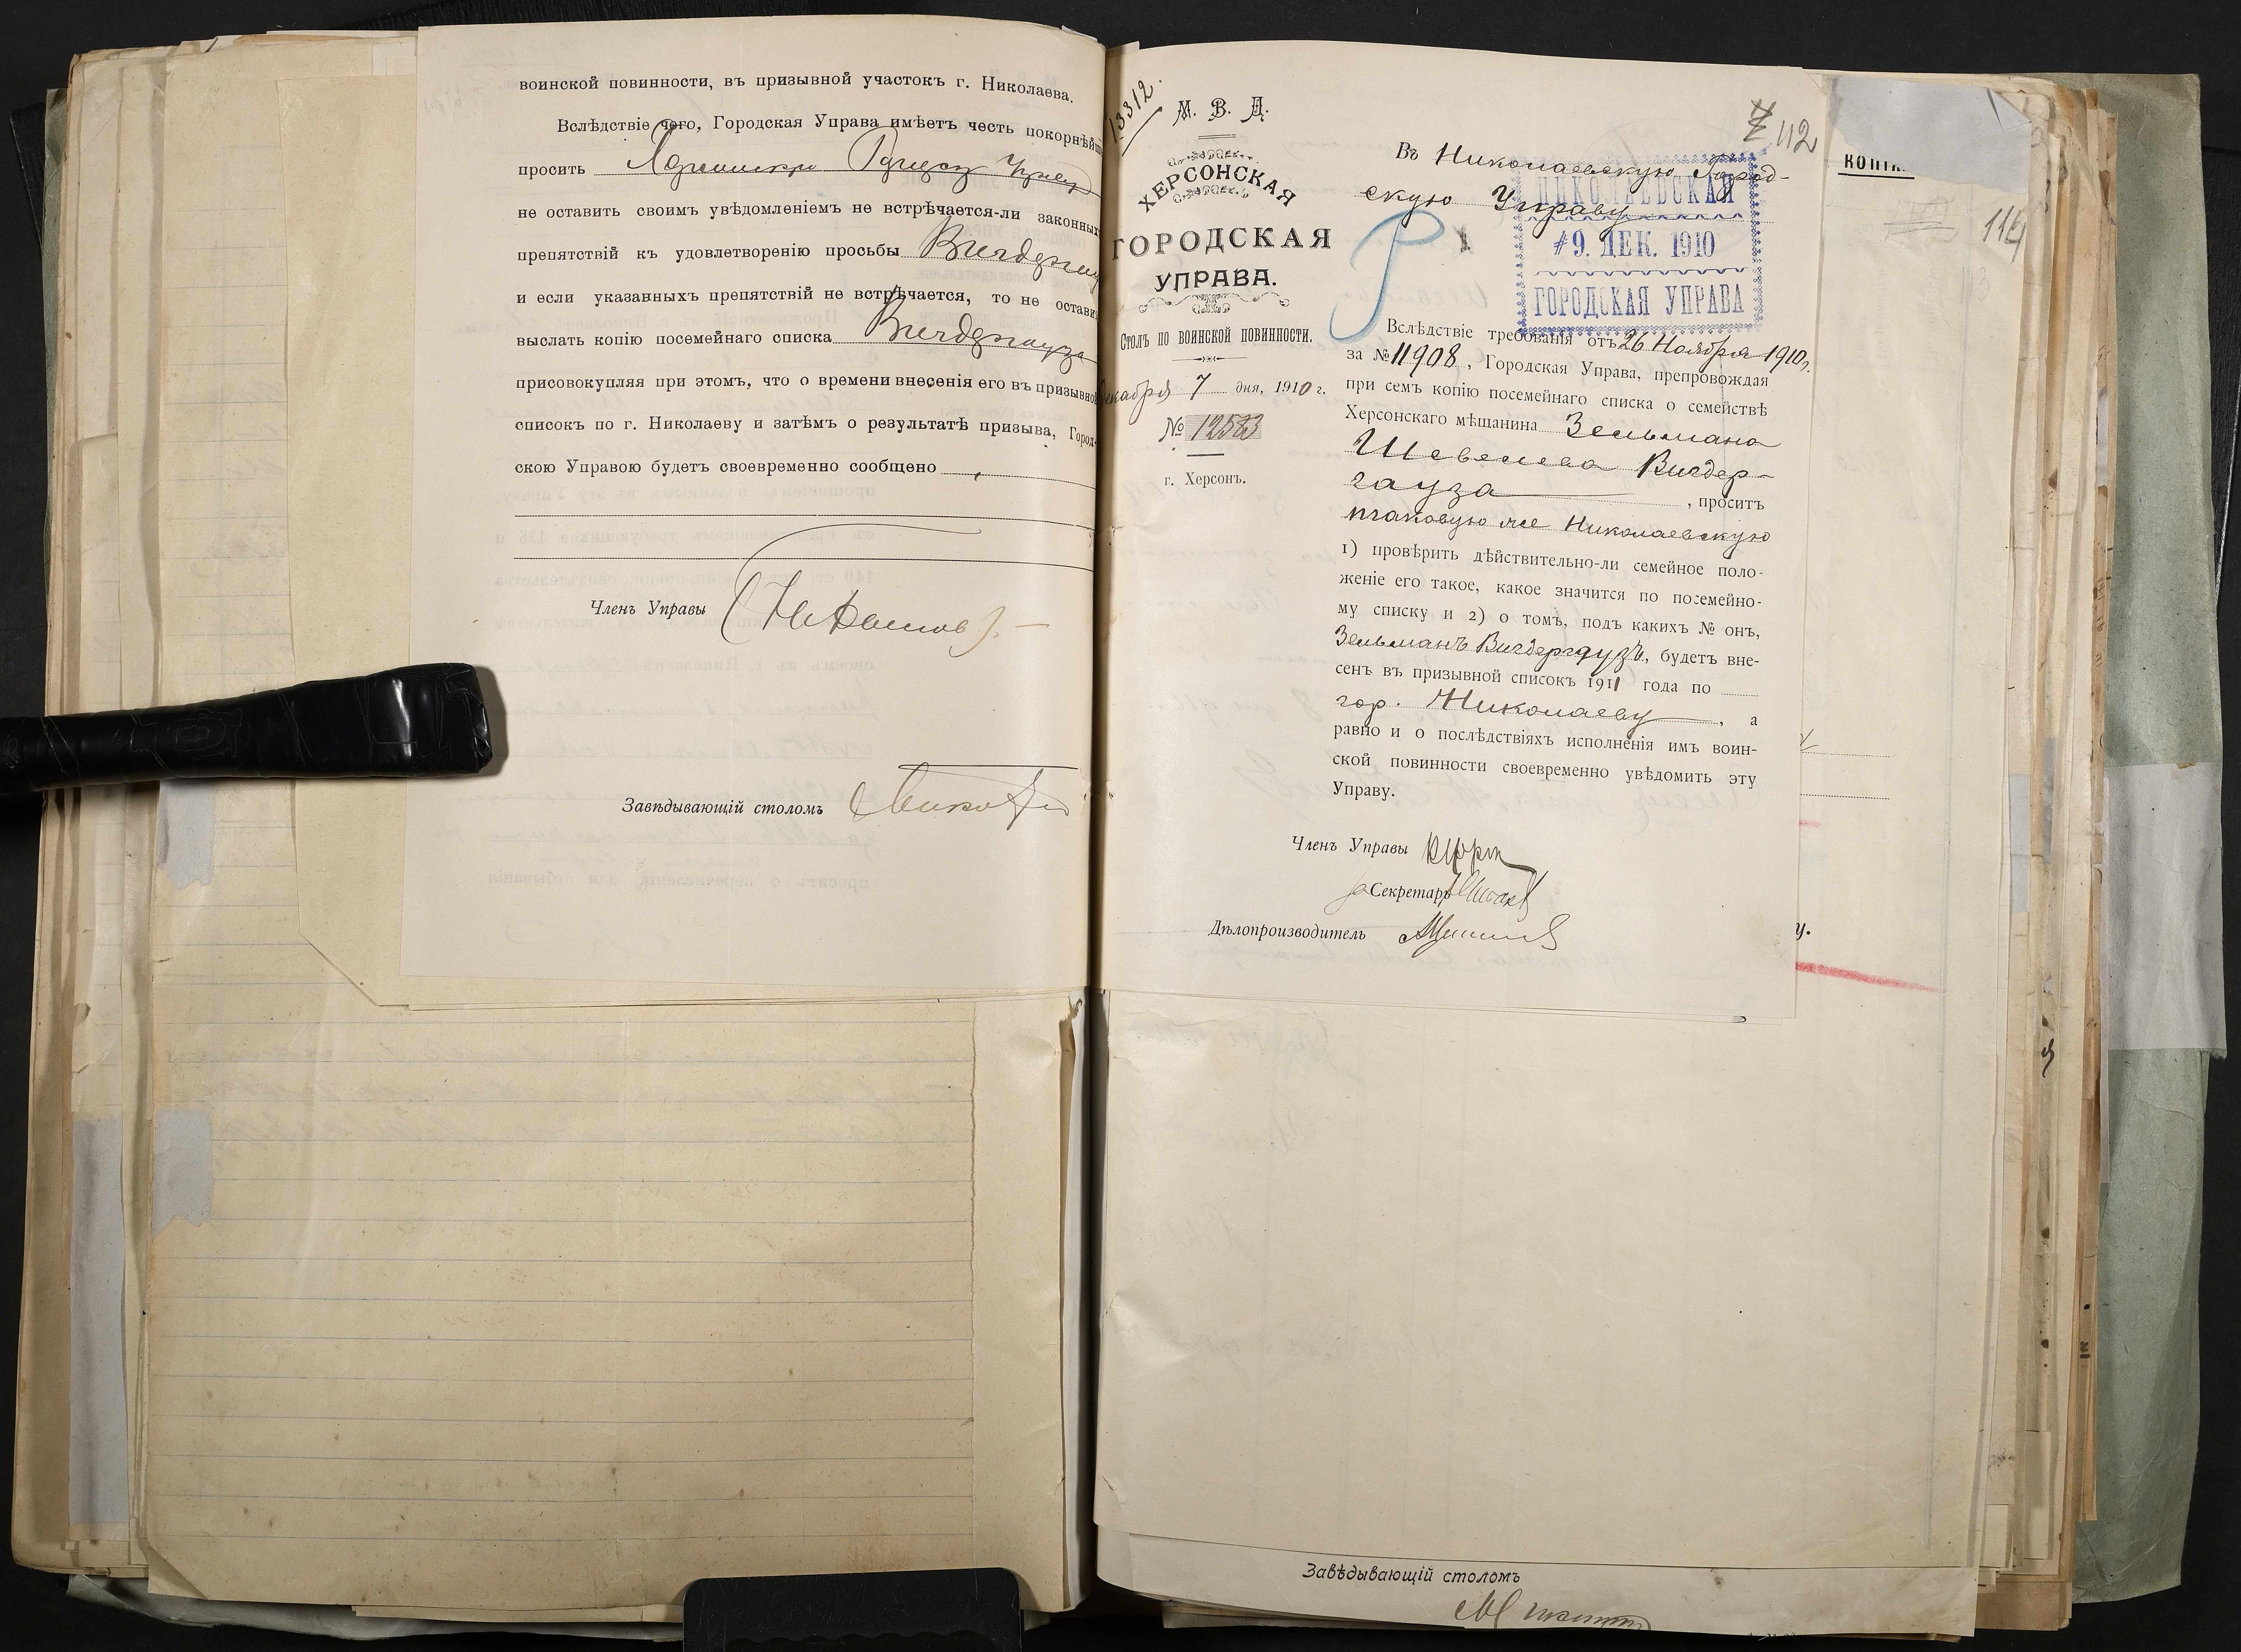 воинской повинности, въ призывной участокъ г. Николаева.
Вслѣдствіе чего, Городская Управа имѣетъ честь покорнѣйше
просить
не оставить своимъ увѣдомленіемъ не встрѣчается-ли законныхъ
препятствій къ удовлетворенію просьбы Вигдергауза
и если указанныхъ препятствій не встрѣчается, то не остави
выслать копію посемейнаго списка Вигдергауза
присовокупляя при этомъ, что о времени внесенія его въ призывной
списокъ по г. Николаеву и затѣмъ о результатѣ призыва, Город-
скою Управою будетъ своевременно сообщено
Членъ Управы
Завѣдывающій столомъ
13312.
М. В. Д.
ХЕРСОНСКАЯ
ГОРОДСКАЯ
УПРАВА.
Столъ по воинской повинности.
Декабря 7 дня, 1910 г.
№ 12583
г. Херсонъ.
112
Въ Николаевскую Город-
скую Управу
НИКОЛАЕВСКАЯ
9. ДЕК. 1910
ГОРОДСКАЯ УПРАВА
Вслѣдствіе требованія отъ 26 Ноября 1910 г.
за № 11908, Городская Управа, препровождая
при семъ копію посемейнаго списка о семействѣ
Херсонскаго мѣщанина Зельмана
Шевелева Вигдер-
гауза, проситъ
таковую же Николаевскую
1) провѣрить дѣйствительно-ли семейное поло-
женіе его такое, какое значится по посемейно-
му списку и 2) о томъ, подъ какихъ № онъ,
Зельманъ Вигдергаузъ, будетъ вне-
сенъ въ призывной списокъ 1911 года по
гор. Николаеву, а
равно и о послѣдствіяхъ исполненія имъ воин-
ской повинности своевременно увѣдомить эту
Управу.
Членъ Управы
за Секретарь
Дѣлопроизводитель
114
у.
Завѣдывающій столомъ